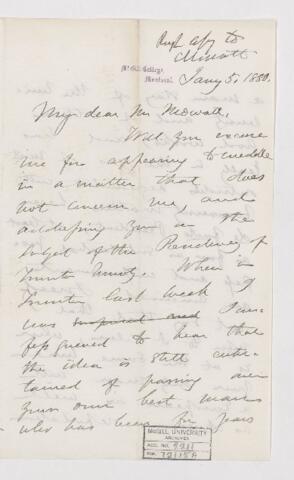 Rough copy to
Mowatt
McGill College,
Montreal.
Jany 5, 1880.
My dear Mr Mowatt,
Will you excuse
me for appearing to meddle
in a matter that does
not concern me, and
addressing you on the
subject of the Presidency of
Toronto University. When in
Toronto last week I
was surprised and I con-
fess grieved to hear that
the idea is still enter-
tained of passing over
your own best man
who has been for years
McGILL UNIVERSITY
ARCHIVES
ACC. NO. 2211
REF.